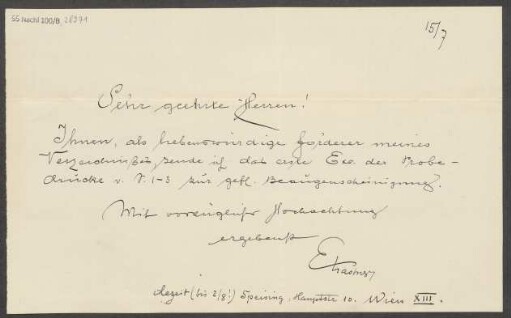 SS Nachl 200/B, 28371
15/7
Sehr geehrte Herren!
Ihnen, als liebenswürdige Förderer meines
Verzeichnisses sende ich das erste Ex. der Probe-
drucke v. S. 1-3 zur gefl. Beaugenscheinigung.
Mit vorzüglicher Hochachtung
ergebenst
derzeit (bis 2/8!) Speising, Hauptstr 10. Wien XIII.